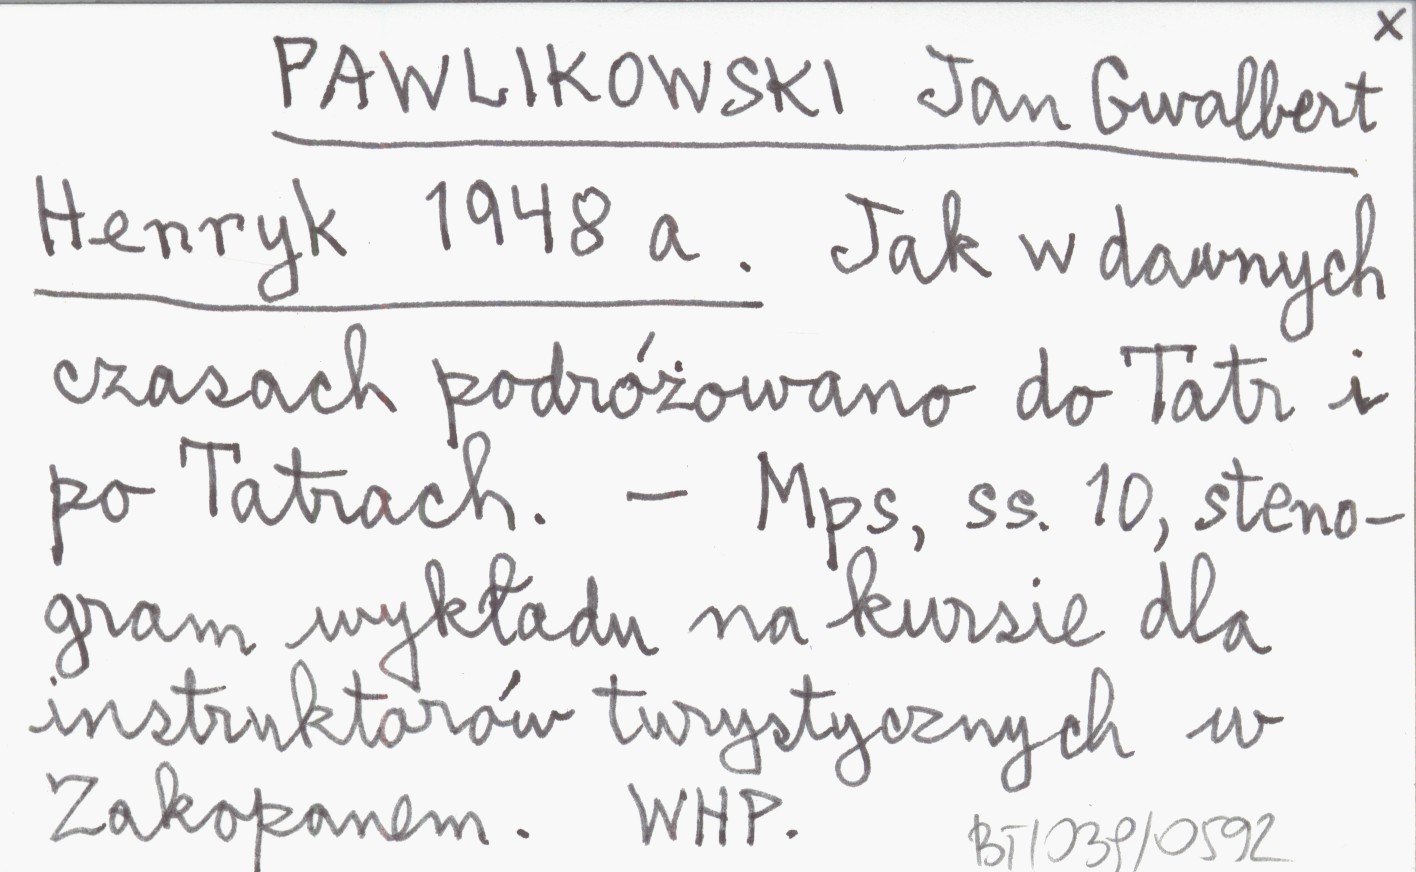 x
PAWLIKOWSKI Jan Gwalbert
Henryk 1948 a. Jak w dawnych
czasach podróżowano do Tatr i
po Tatrach. — Mps, ss. 10, steno-
gram wykładu na kursie dla
instruktorów turystycznych w
Zakopanem. WHP.
BT/039/0592